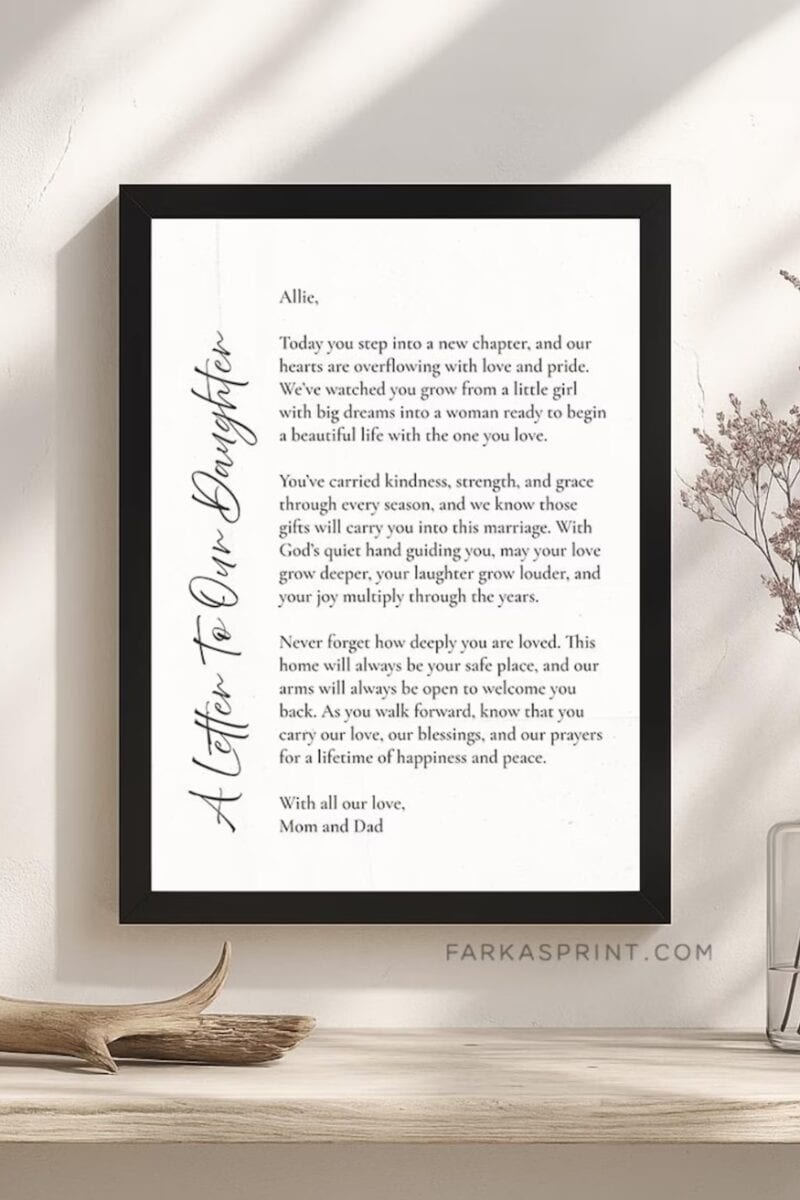 A Letter To Our Daughter
Allie,
Today you step into a new chapter, and our
hearts are overflowing with love and pride.
We've watched you grow from a little girl
with big dreams into a woman ready to begin
a beautiful life with the one you love.
You've carried kindness, strength, and grace
through every season, and we know those
gifts will carry you into this marriage. With
God's quiet hand guiding you, may your love
grow deeper, your laughter grow louder, and
your joy multiply through the years.
Never forget how deeply you are loved. This
home will always be your safe place, and our
arms will always be open to welcome you
back. As you walk forward, know that you
carry our love, our blessings, and our prayers
for a lifetime of happiness and peace.
With all our love,
Mom and Dad
FARKASPRINT.COM